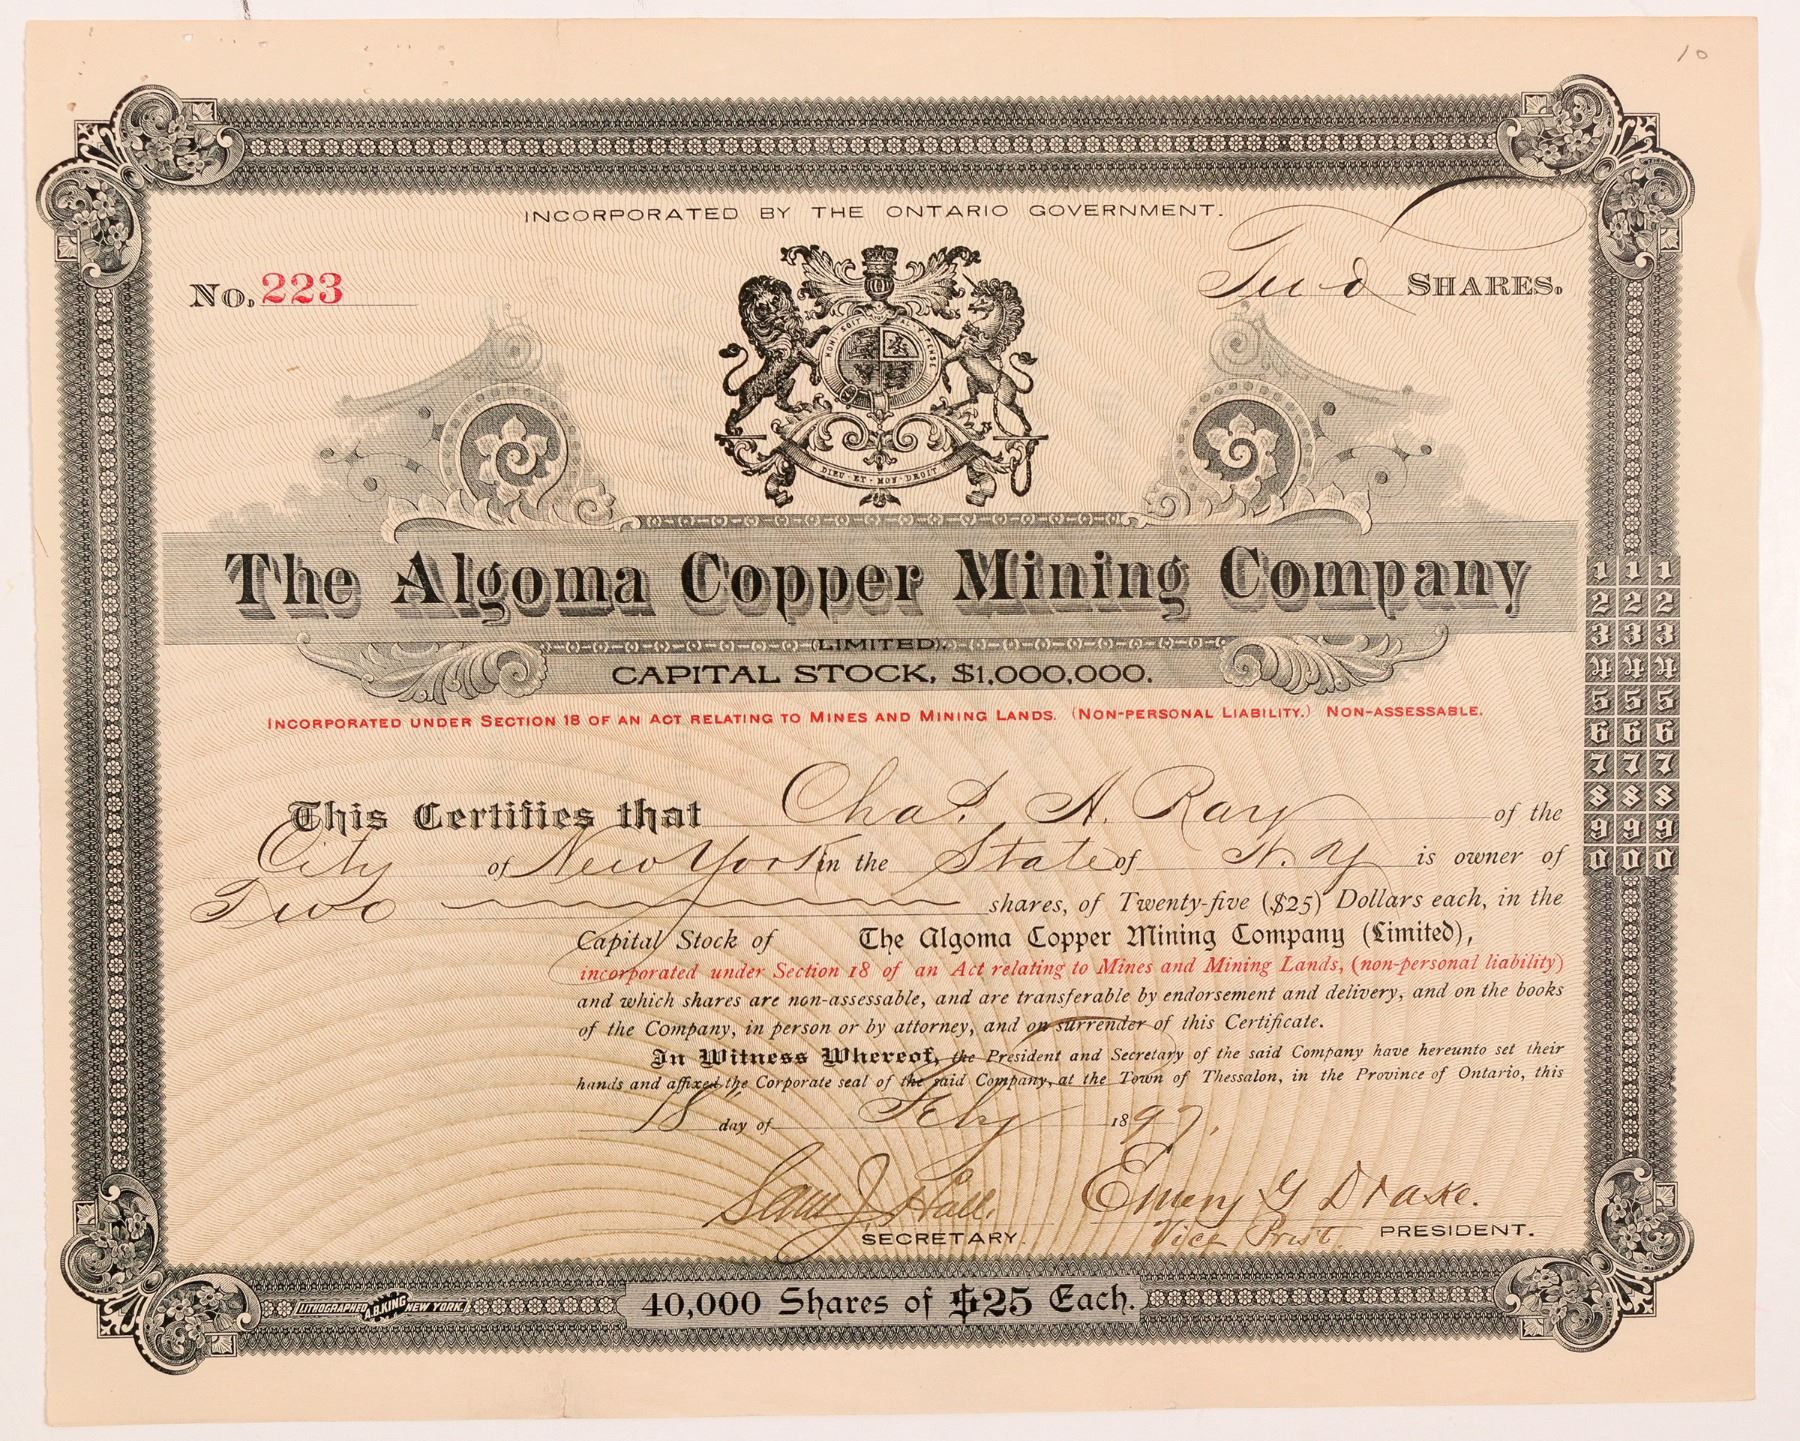 10
INCORPORATED BY THE ONTARIO GOVERNMENT.
No. 223
Two SHARES.
HONI SOIT QUI MAL Y PENSE
DIEU ET MON DROIT
The Algoma Copper Mining Company
(LIMITED).
CAPITAL STOCK, $1,000,000.
INCORPORATED UNDER SECTION 18 OF AN ACT RELATING TO MINES AND MINING LANDS. (NON-PERSONAL LIABILITY.) NON-ASSESSABLE.
1 1 1
2 2 2
3 3 3
4 4 4
5 5 5
6 6 6
7 7 7
8 8 8
9 9 9
0 0 0
This Certifies that Chas. A. Ray of the
City of New York in the State of N.Y. is owner of
Two shares, of Twenty-five ($25) Dollars each, in the
Capital Stock of The Algoma Copper Mining Company (Limited),
incorporated under Section 18 of an Act relating to Mines and Mining Lands, (non-personal liability)
and which shares are non-assessable, and are transferable by endorsement and delivery, and on the books
of the Company, in person or by attorney, and on surrender of this Certificate.
In Witness Whereof, the President and Secretary of the said Company have hereunto set their
hands and affixed the Corporate seal of the said Company, at the Town of Thessalon, in the Province of Ontario, this
18th day of Feby 1897.
Sam J. Hall. Emery G Drake.
SECRETARY. Vice Prest. PRESIDENT.
LITHOGRAPHED A.B. KING NEW YORK.
40,000 Shares of $25 Each.